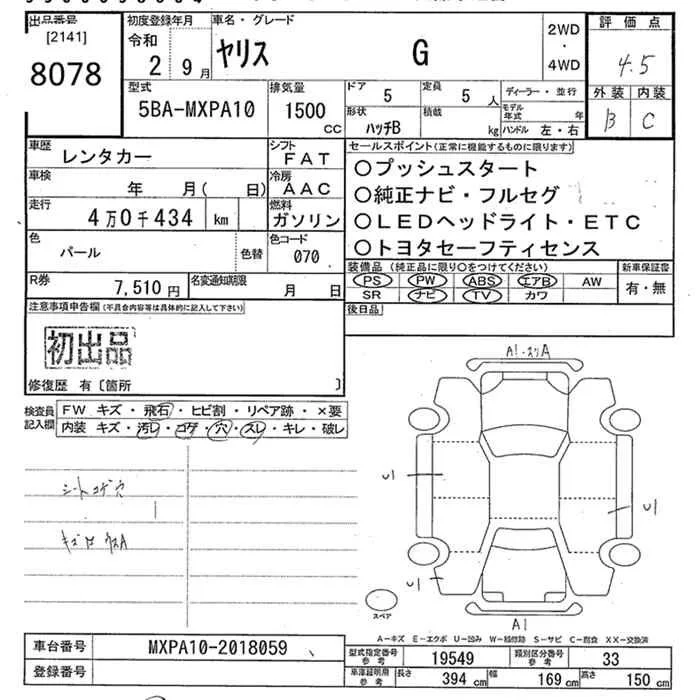 出品番号
[2141]
8078
初度登録年月
令和
2 9月
車名・グレード
ヤリス G
2WD
・
4WD
評価点
4.5
外装 内装
B C
型式
5BA-MXPA10
排気量
1500
CC
ドア 5
定員 5 人
形状 ハッチB
積載 kg
ディーラー・並行
モデル年式 年
ハンドル 左・右
車歴
レンタカー
シフト
FAT
車検
年 月( 日)
冷房
AAC
走行
4万0千434 km
燃料
ガソリン
色
パール
色替
色コード
070
R券
7,510円
名変通知期限
月 日
セールスポイント(正常に機能するものに限ります)
○プッシュスタート
○純正ナビ・フルセグ
○LEDヘッドライト・ETC
○トヨタセーフティセンス
装備品(純正品に限り○をつけてください)
PS PW ABS エアB AW
SR ナビ TV カワ
新車保証書
有・無
後日品
注意事項申告欄(不具合内容等は具体的に記入して下さい)
初出品
修復歴 有〔箇所 〕
検査員
記入欄
FW キズ・飛石・ヒビ割・リペア跡・×要
内装 キズ・汚レ・コゲ・穴・スレ・キレ・破レ
シートコゲ穴
A1・スリA
U1
U1
U1
A1
スペア
A-キズ E-エクボ U-凹み W-補修跡 S-サビ C-腐食 XX-交換済
車台番号
MXPA10-2018059
登録番号
型式指定番号
参考
19549
類別区分番号
参考
33
車庫証明用
参考
長さ 394 cm
幅 169 cm
高さ 150 cm